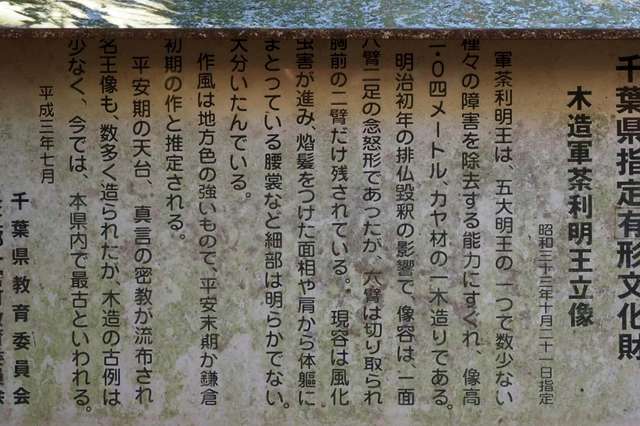 千葉県指定有形文化財
木造軍荼利明王立像
昭和三十三年十月二十一日指定
軍荼利明王は、五大明王の一つで数少ない
種々の障害を除去する能力にすぐれ、像高
二・〇四メートル、カヤ材の一木造りである。
明治初年の排仏毀釈の影響で、像容は、一面
八臂二足の忿怒形であったが、六臂は切り取られ
胸前の二臂だけ残されている。現容は風化
虫害が進み、焔髪をつけた面相や肩から体軀に
まとっている腰裳など細部は明らかでない。
大分いたんでいる。
作風は地方色の強いもので、平安末期か鎌倉
初期の作と推定される。
平安期の天台、真言の密教が流布され
名王像も、数多く造られたが、木造の古例は
少なく、今では、本県内で最古といわれる。
平成三年七月
千葉県教育委員会
教育委員会